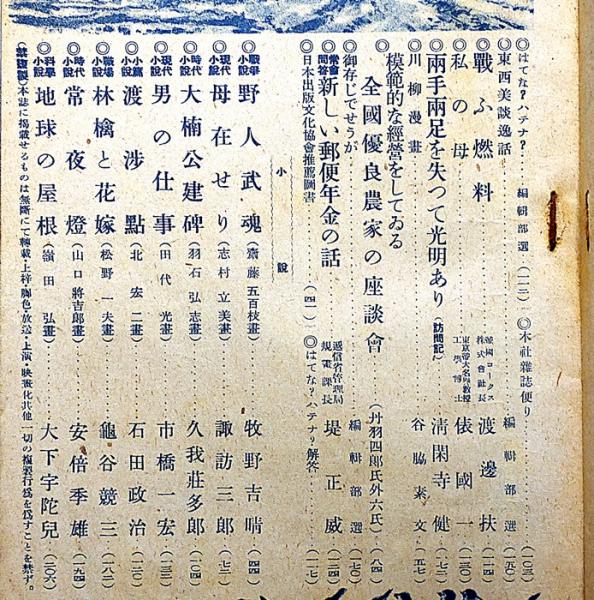 ◎はてな?ハテナ?………編輯部選(一三)◎本社雜誌便り………(一〇三)
◎東西美談逸話………編輯部選(一五〇)
◎戰ふ燃料………帝國コークス株式會社長 渡邊扶(一一四)
◎私の母………東京帝大名譽教授工學博士 俵國一(一〇七)
◎兩手兩足を失つて光明あり(訪問記)…清閑寺健(一七二)
◎川柳漫畫………谷脇素文
◎模範的な經營をしてゐる全國優良農家の座談會…(丹羽四郎氏外六氏)(八四)
◎御存じでせうが………編輯部選(七〇)
◎常會問答新しい郵便年金の話………遞信省管理局規畫課長 堤正威(一二四)
◎日本出版文化協會推薦圖書………(四一)◎はてな?ハテナ?解答………(一一七)
小說
戰爭小說 野人武魂(齋藤五百枝畫)………牧野吉晴(四四)
現代小說 母在せり(志村立美畫)………諏訪三郎(七二)
時代小說 大楠公建碑(羽石弘志畫)………久我莊多郎(一〇四)
現代小說 男の仕事(田代光畫)………市橋一宏(一三二)
小篇小說 渡渉點(北宏二畫)………石田政治(一二〇)
職場小說 林檎と花嫁(松野一夫畫)………龜谷競三(一八二)
時代小說 常夜燈(山口將吉郎畫)………安倍季雄(一九四)
科學小說 地球の屋根(嶺田弘畫)………大下宇陀兒(二〇六)
(禁複製)本誌に揭載せるものは無斷にて轉載・上梓・脚色・放送・上演・映畫化其他一切の複製行爲を爲すことを禁ず。